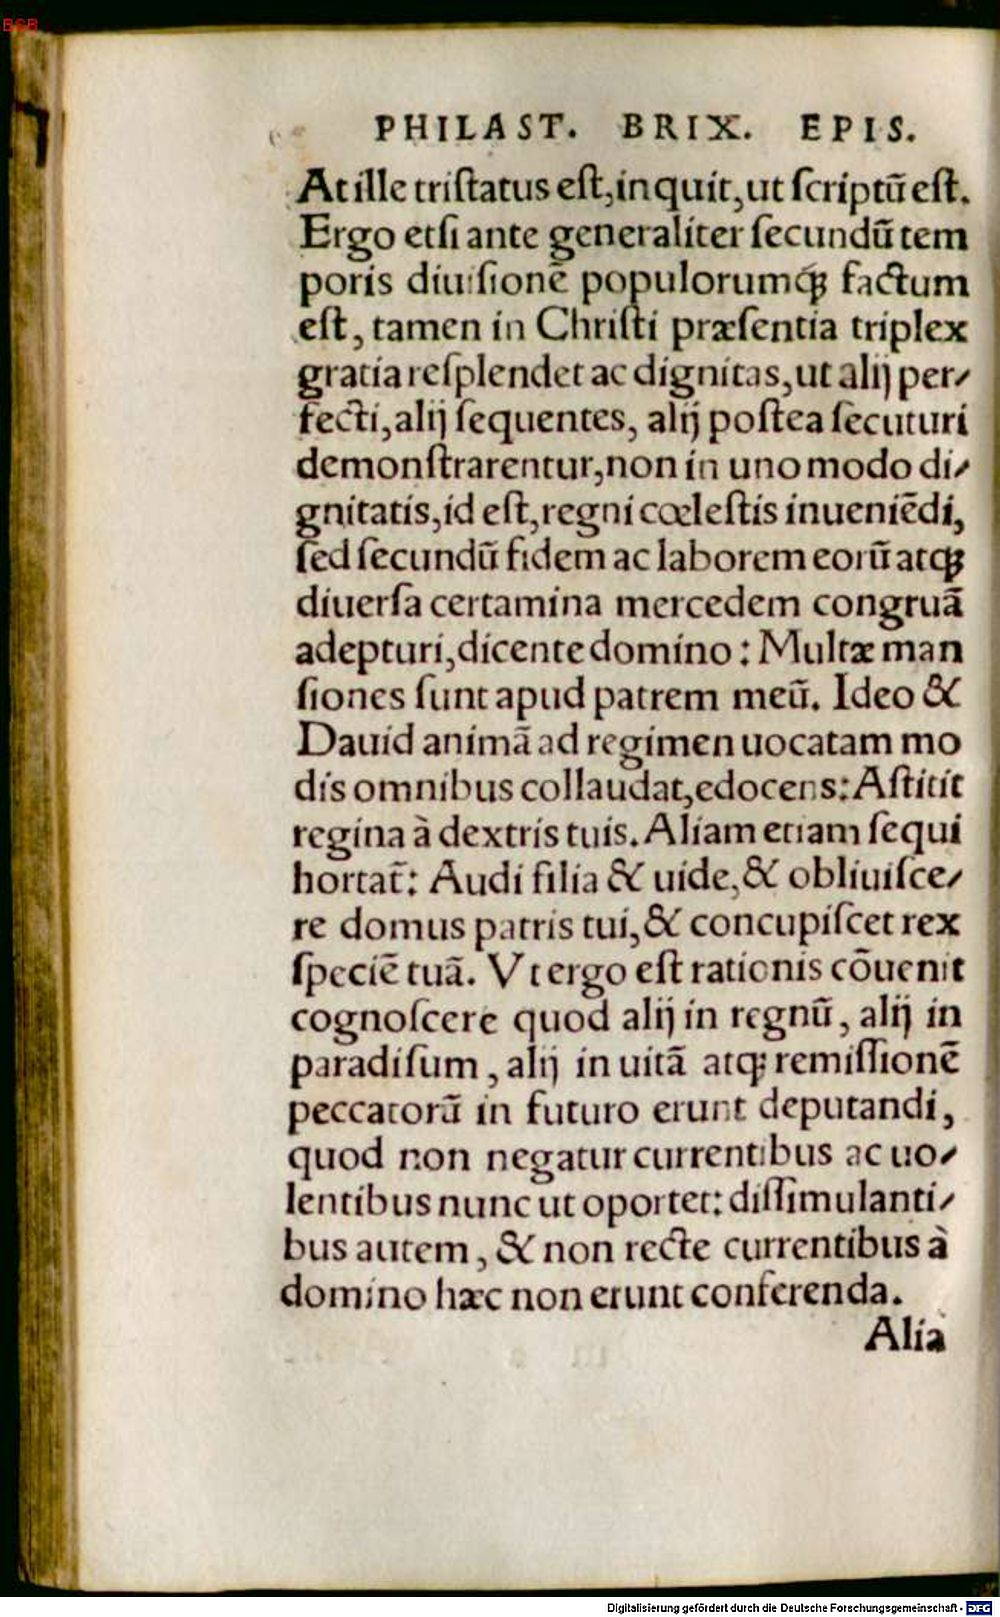 BSB
PHILAST. BRIX. EPIS.
At ille triſtatus eſt, inquit, ut ſcriptū eſt.
Ergo etſi ante generaliter ſecundū tem
poris diuiſionē populorumq́ꝫ factum
eſt, tamen in Chriſti præſentia triplex
gratia reſplendet ac dignitas, ut alij per⸗
fecti, alij ſequentes, alij poſtea ſecuturi
demonſtrarentur, non in uno modo di⸗
gnitatis, id eſt, regni cœleſtis inueniēdi,
ſed ſecundū fidem ac laborem eorū atqꝫ
diuerſa certamina mercedem congruā
adepturi, dicente domino: Multæ man
ſiones ſunt apud patrem meū. Ideo &
Dauid animā ad regimen uocatam mo
dis omnibus collaudat, edocens: Aſtitit
regina à dextris tuis. Aliam etiam ſequi
hortat̃: Audi filia & uide, & obliuiſce⸗
re domus patris tui, & concupiſcet rex
ſpeciē tuā. Vt ergo eſt rationis cōuenit
cognoſcere quod alij in regnū, alij in
paradiſum, alij in uitā atqꝫ remiſſionē
peccatorū in futuro erunt deputandi,
quod non negatur currentibus ac uo⸗
lentibus nunc ut oportet: diſſimulanti⸗
bus autem, & non recte currentibus à
domino hæc non erunt conferenda.
Alia
Digitalisierung gefördert durch die Deutsche Forschungsgemeinschaft - DFG